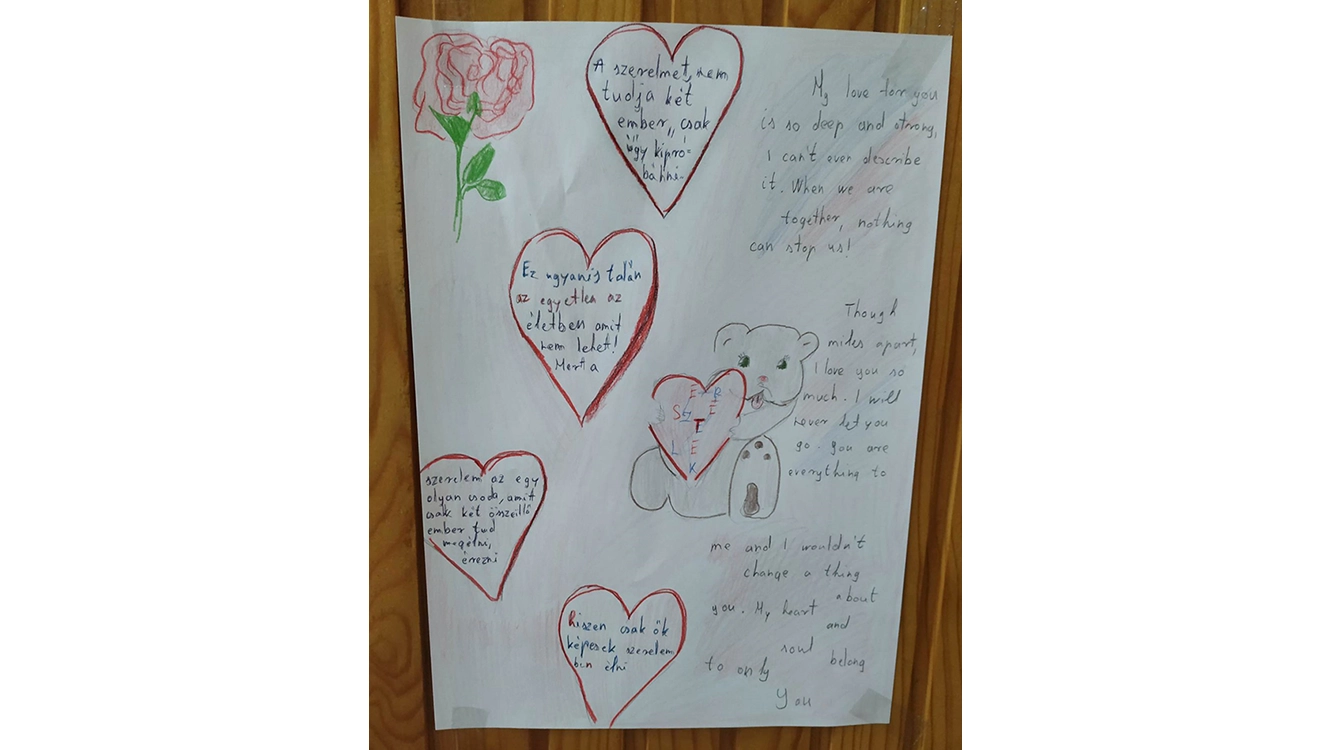 A szerelmet, nem
tudja két
ember,, csak
úgy kipró=
bálni.
Ez ugyanis talán
az egyetlen az
életben amit
nem lehet!
Mert a
szerelem az egy
olyan csoda, amit
csak két összeillő
ember tud
megélni,
érezni
hiszen csak ők
képesek szerelem
ben élni
SZERETLEK
My love for you
is so deep and strong,
I can't even describe
it. When we are
together, nothing
can stop us!
Though
miles apart,
I love you so
much. I will
never let you
go. you are
everything to
me and I wouldn't
change a thing
about
you. My heart
and
soul
belong
to only
You